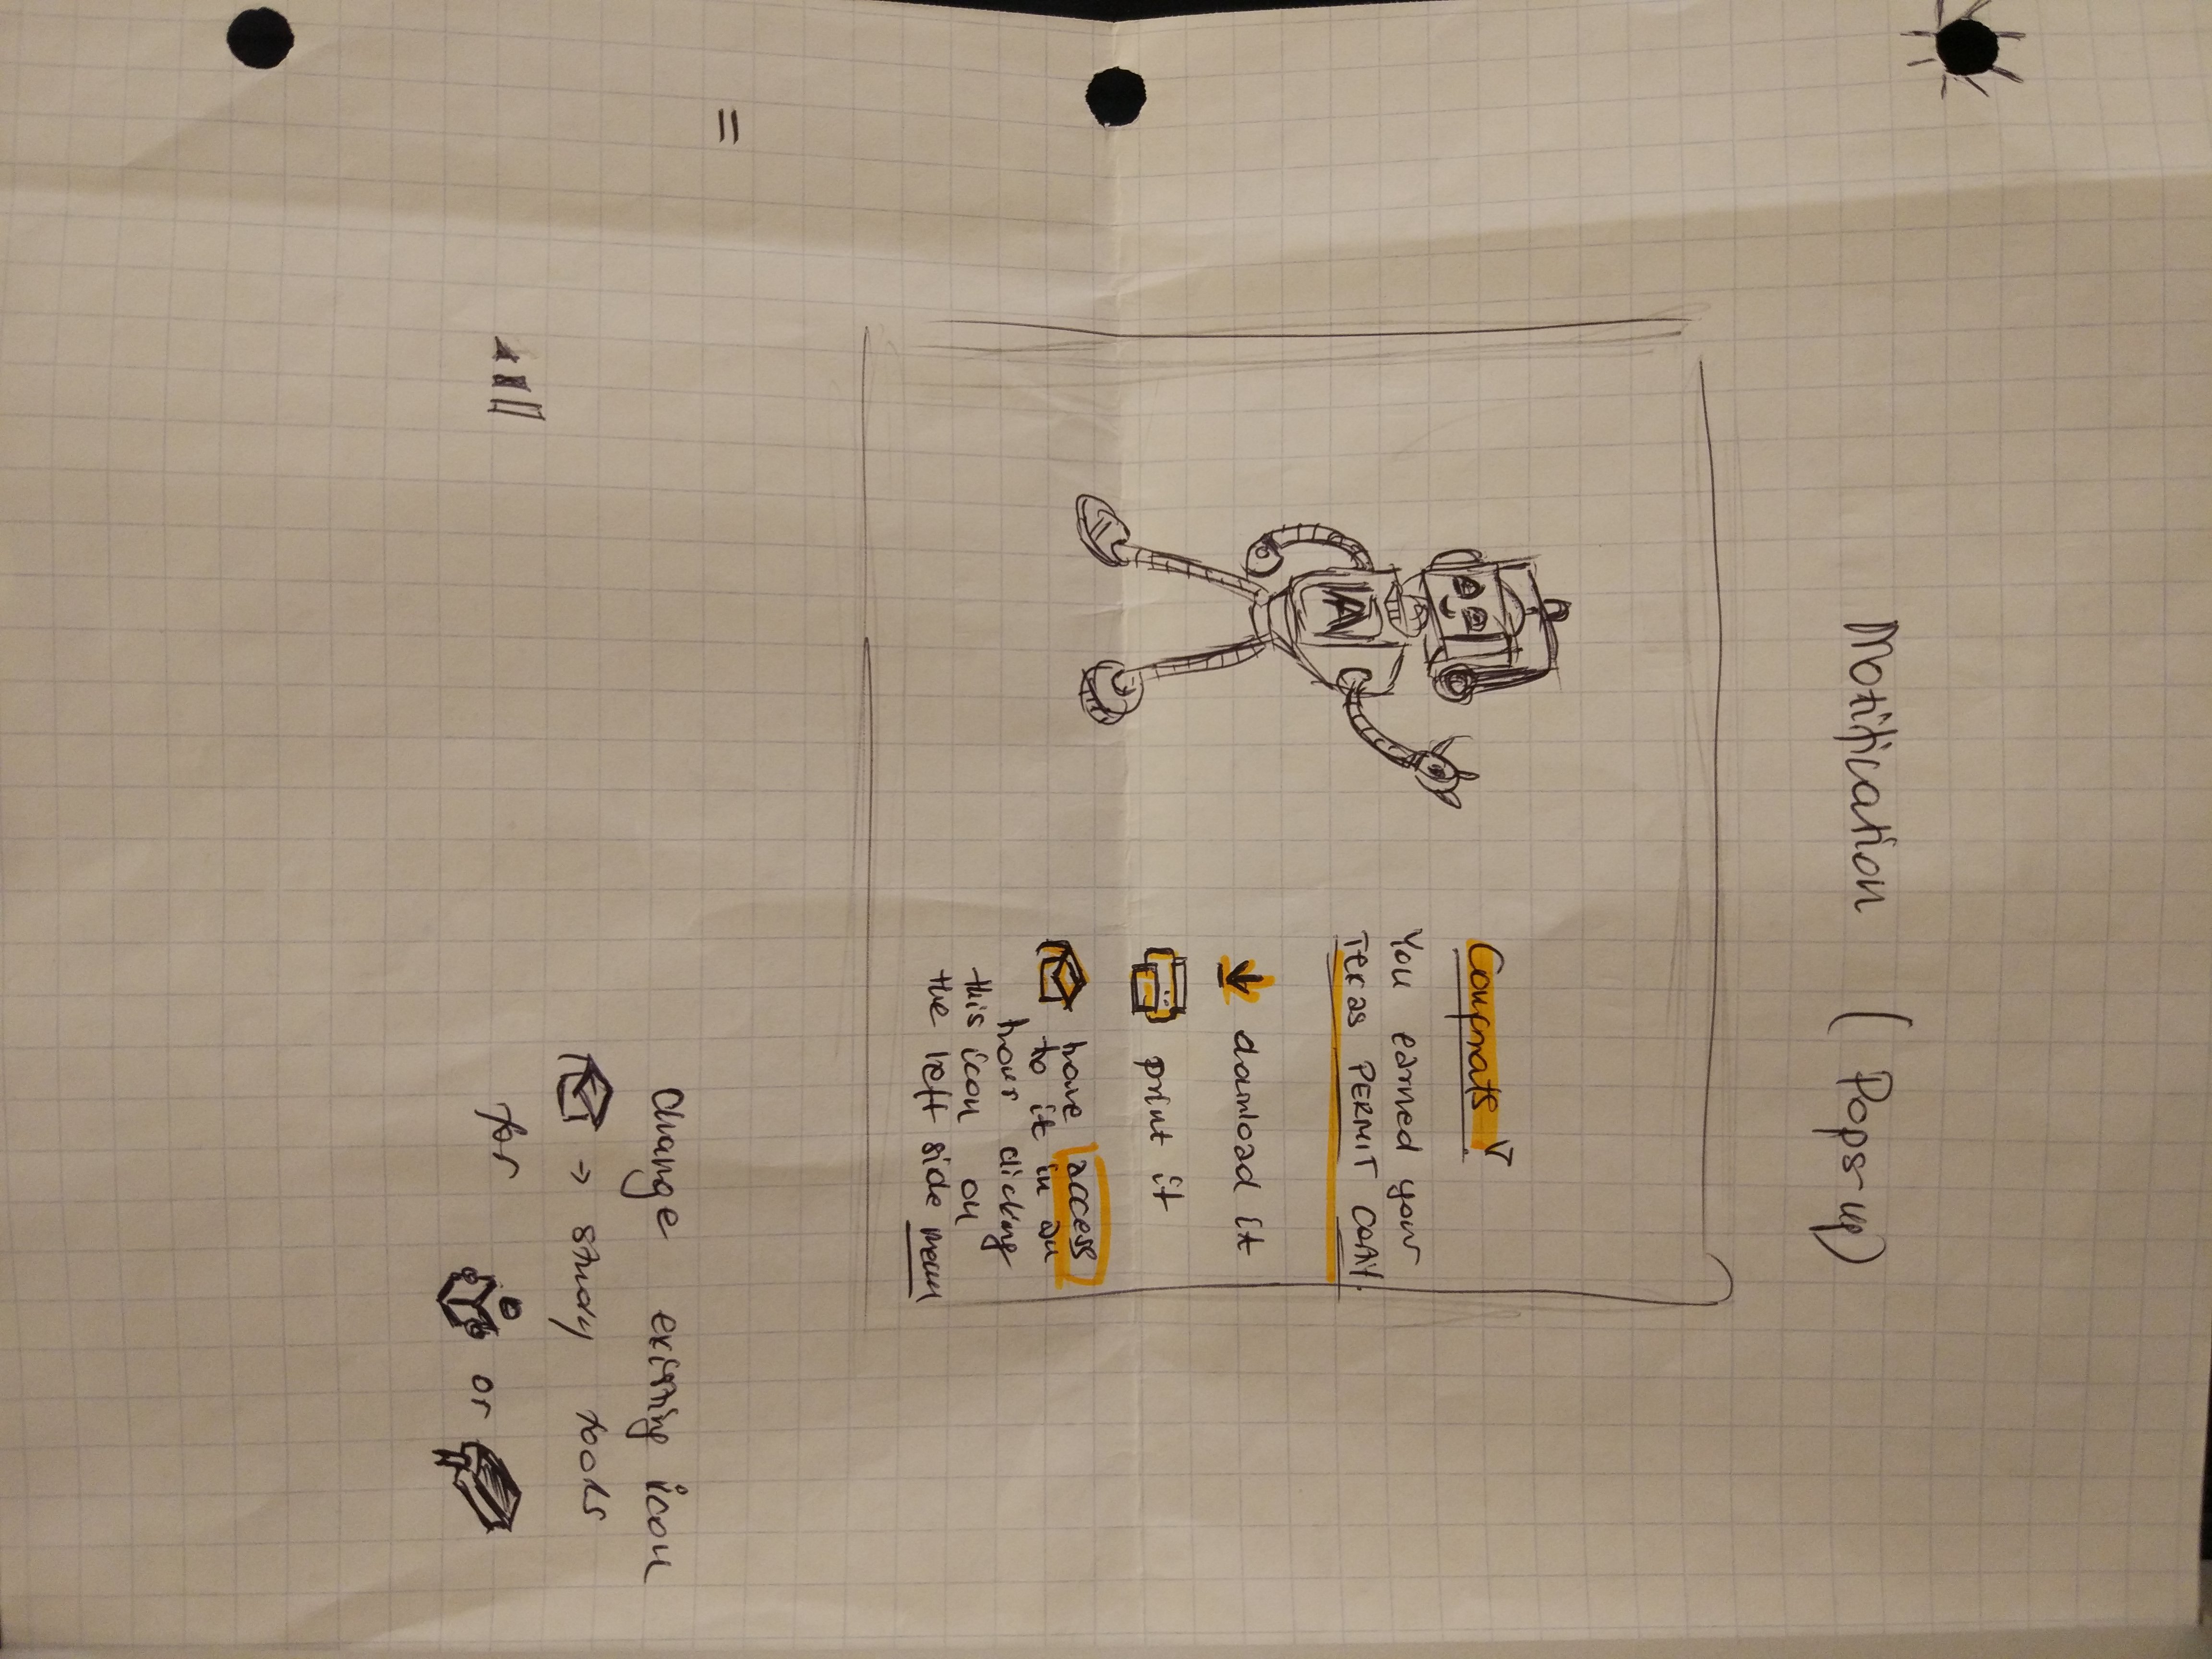 Notification (Pops-up)
A
Congrats!
You earned your
Texas PERMIT
download it
print it
have access
to it in an
hour clicking
this icon on
the left side menu
=
change existing icon
→ study tools
for or